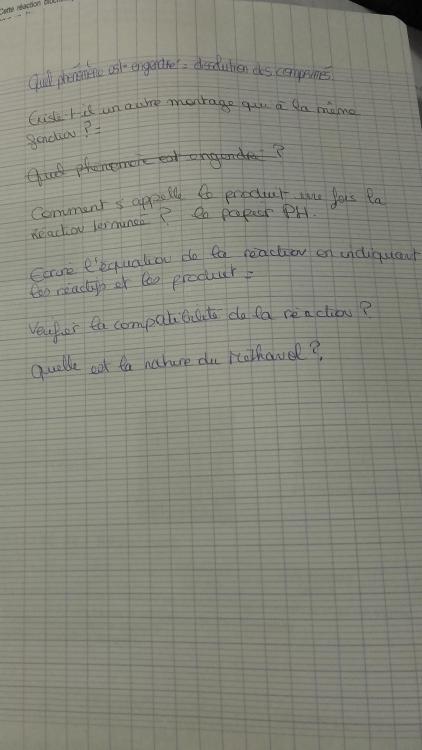 Cette réaction
Quel phénomène est engendré = dissolution des comprimés.
Existe t-il un autre montage qui à la même
fonction ? =
Quel phenomene est engendré ?
Comment s'appelle le produit une fois la
réaction terminée ? le papier PH.
Ecrire l'équation de la réaction en indiquant
les réactifs et les produit =
Verifier la compatibilité de la réaction ?
Quelle est la nature du Méthanol ?